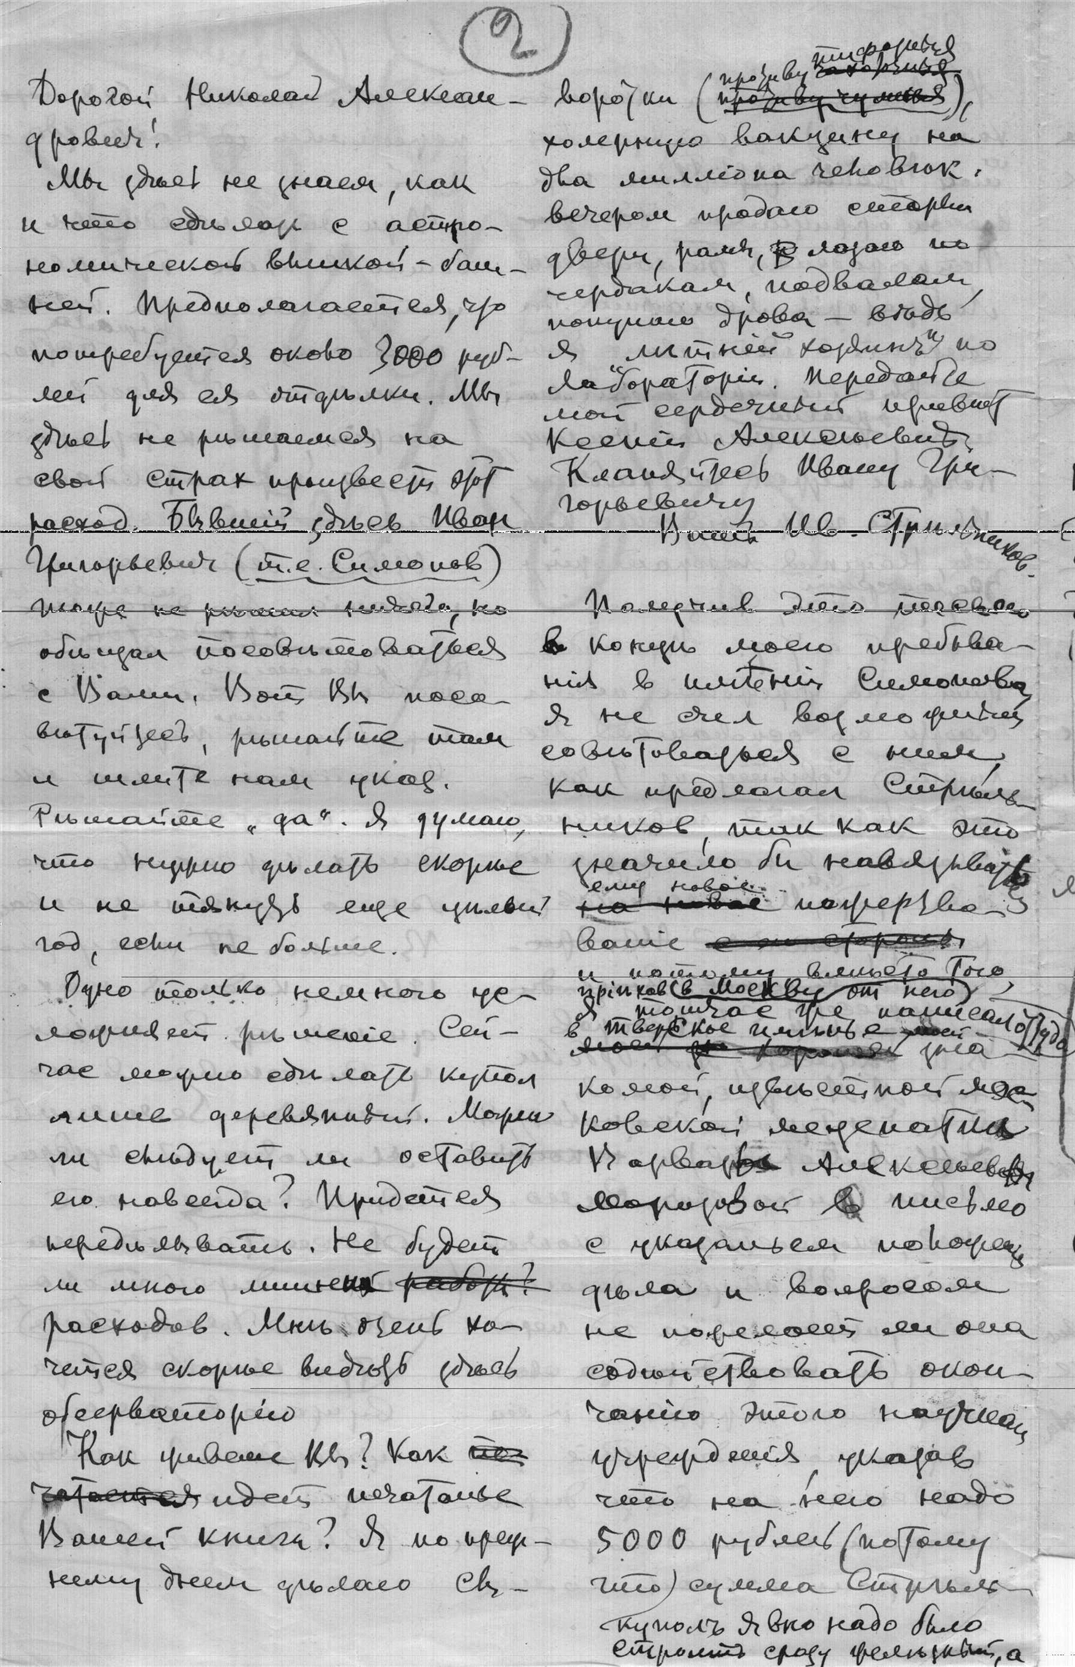 2
Дорогой Николай Алексан-
дрович!
Мы здесь не знаем, как
и что сделать с астро-
номической вышкой-баш-
ней. Предполагается, что
потребуется около 3000 руб-
лей для ея отделки. Мы
здесь не решаемся на
свой страх произвести этот
расход. Бывший здесь Иван
Григорьевич (т.е. Симонов)
тоже не решил ничего, но
обещал посоветоваться
с Вами. Вот Вы посо-
ветуйтесь, решайте там
и шлите нам указ.
Решайте „да“. Я думаю,
что нужно делать скорее
и не тянуть еще целый
год, если не больше.
Одно только немного ус-
ложняет решение. Сей-
час можно сделать купол
лишь деревянный. Можно
ли следует ли оставить
его навсегда? Придется
переделывать. Не будет
ли много лишней работы?
расходов. Мне очень хо-
чется скорее видеть здесь
обсерваторию
Как живете Вы? Как пе-
чатается идет печатанье
Вашей книги? Я по преж-
нему днем делаю сы-
воротки (противу тифозныя
противу чумныя),
холерную вакцину на
два миллiона человек.
вечером продаю старыя
двери, рамы, лазаю по
чердакам, подвалам,
покупаю дрова — ведь
я „летний хозяинъ“ по
лабораторiи. Передайте
мой сердечный привет
Ксенiи Алексеевне.
Кланяйтесь Ивану Гри-
горьевичу
Вашъ Ив. Стрельников.
Получив это письмо
в конце моего пребыва-
нiя в именiи Симонова
я не счел возможным
советоваться с ним,
как предлагал Стрель-
ников, так как это
значило бы навязывать
ему новое
на новое пожертво-
ванiе
и потому вместо того,
прiехав в Москву от него,
я тотчас же написал оттуда
в тверское именье
моей хорошей зна-
комой, известной мос-
ковской меценатки
Варвары Алексеевны
Морозовой письмо
с указаньем положенiя
дела и вопросом
не пожелает ли она
содействовать окон-
чанiю этого научнаго
учрежденiя, указав
что на него надо
5000 рублей (потому
что) сумма Стрель-
куполъ явно надо было
строить сразу железный, а